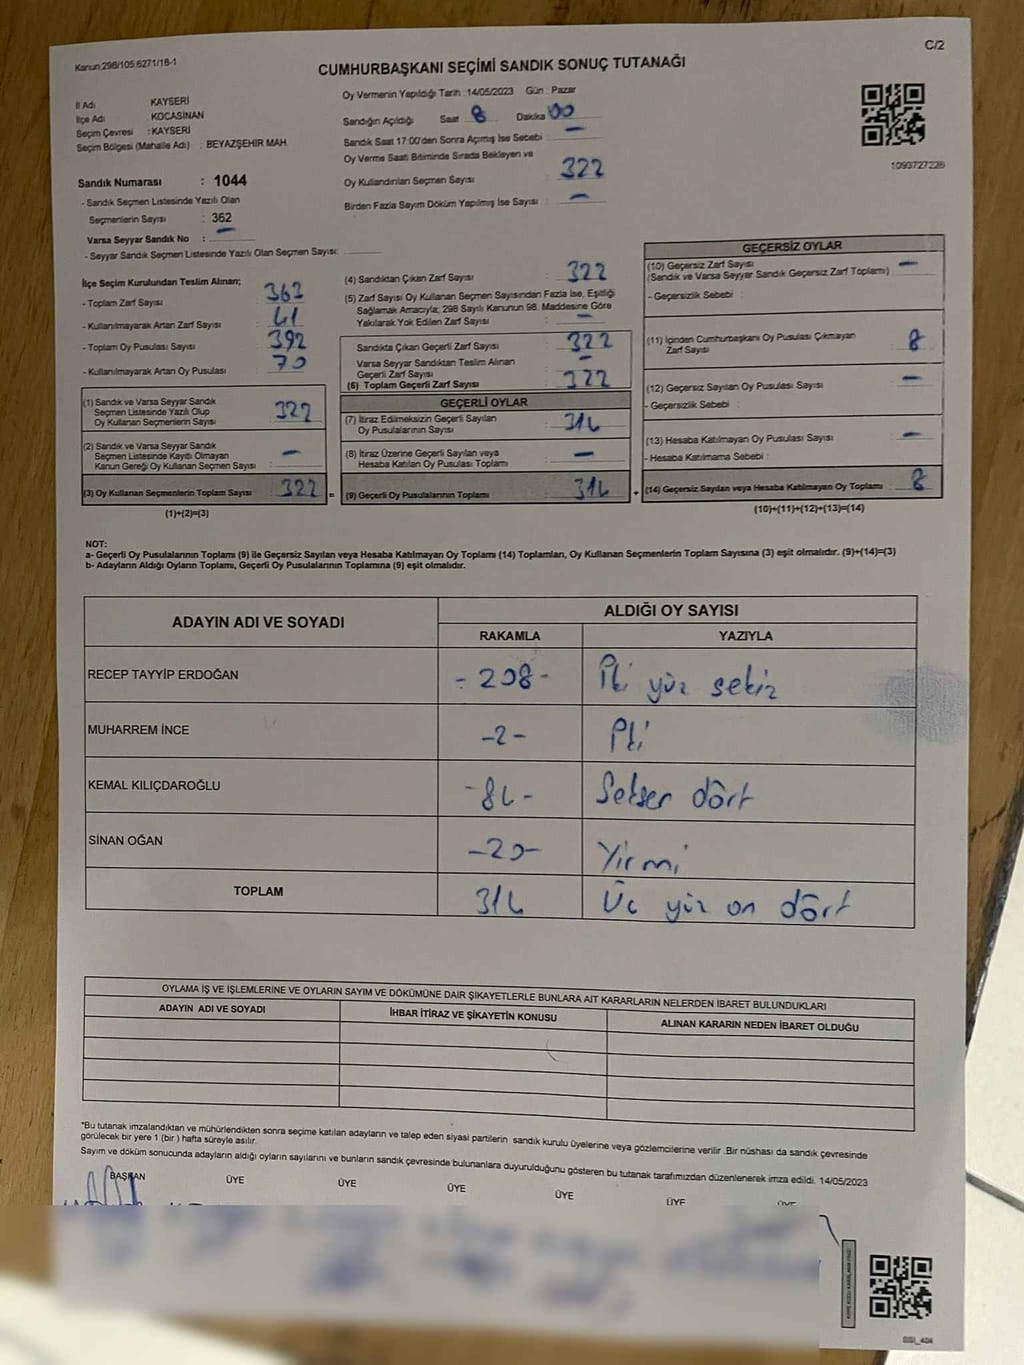 Kanun:298/105,6271/18-1
C/2
CUMHURBAŞKANI SEÇİMİ SANDIK SONUÇ TUTANAĞI
İl Adı KAYSERİ
İlçe Adı KOCASİNAN
Seçim Çevresi : KAYSERİ
Seçim Bölgesi (Mahalle Adı) : BEYAZŞEHİR MAH.
Sandık Numarası : 1044
- Sandık Seçmen Listesinde Yazılı Olan
Seçmenlerin Sayısı : 362
Varsa Seyyar Sandık No : -
- Seyyar Sandık Seçmen Listesinde Yazılı Olan Seçmen Sayısı:
Oy Vermenin Yapıldığı Tarih :14/05/2023 Gün : Pazar
Sandığın Açıldığı Saat 8 Dakika 00
Sandık Saat 17:00'den Sonra Açımış İse Sebebi : -
Oy Verme Saati Bitiminde Sırada Bekleyen ve
Oy Kullandırılan Seçmen Sayısı : 322
Birden Fazla Sayım Döküm Yapılmış İse Sayısı : -
1093727226
İlçe Seçim Kurulundan Teslim Alınan;
- Toplam Zarf Sayısı : 363
- Kullanılmayarak Artan Zarf Sayısı : 41
- Toplam Oy Pusulası Sayısı : 392
- Kullanılmayarak Artan Oy Pusulası : 70
(1) Sandık ve Varsa Seyyar Sandık
Seçmen Listesinde Yazılı Olup
Oy Kullanan Seçmenlerin Sayısı : 322
(2) Sandık ve Varsa Seyyar Sandık
Seçmen Listesinde Kayıtlı Olmayan
Kanun Gereği Oy Kullanan Seçmen Sayısı : -
(3) Oy Kullanan Seçmenlerin Toplam Sayısı : 322 =
(1)+(2)=(3)
(4) Sandıktan Çıkan Zarf Sayısı : 322
(5) Zarf Sayısı Oy Kullanan Seçmen Sayısından Fazla İse, Eşitliği
Sağlamak Amacıyla; 298 Sayılı Kanunun 98. Maddesine Göre
Yakılarak Yok Edilen Zarf Sayısı : -
Sandıkta Çıkan Geçerli Zarf Sayısı : 322
Varsa Seyyar Sandıktan Teslim Alınan
Geçerli Zarf Sayısı : -
(6) Toplam Geçerli Zarf Sayısı : 322
GEÇERLİ OYLAR
(7) İtiraz Edilmeksizin Geçerli Sayılan
Oy Pusulalarının Sayısı : 314
(8) İtiraz Üzerine Geçerli Sayılan veya
Hesaba Katılan Oy Pusulası Toplamı : -
(9) Geçerli Oy Pusulalarının Toplamı : 314 +
GEÇERSİZ OYLAR
(10) Geçersiz Zarf Sayısı : -
(Sandık ve Varsa Seyyar Sandık Geçersiz Zarf Toplamı)
- Geçersizlik Sebebi :
(11) İçinden Cumhurbaşkanı Oy Pusulası Çıkmayan
Zarf Sayısı : 8
(12) Geçersiz Sayılan Oy Pusulası Sayısı : -
- Geçersizlik Sebebi :
(13) Hesaba Katılmayan Oy Pusulası Sayısı : -
- Hesaba Katılmama Sebebi :
(14) Geçersiz Sayılan veya Hesaba Katılmayan Oy Toplamı : 8
(10)+(11)+(12)+(13)=(14)
NOT:
a- Geçerli Oy Pusulalarının Toplamı (9) ile Geçersiz Sayılan veya Hesaba Katılmayan Oy Toplamı (14) Toplamları, Oy Kullanan Seçmenlerin Toplam Sayısına (3) eşit olmalıdır. (9)+(14)=(3)
b- Adayların Aldığı Oyların Toplamı, Geçerli Oy Pusulalarının Toplamına (9) eşit olmalıdır.
ADAYIN ADI VE SOYADI ALDIĞI OY SAYISI
RAKAMLA YAZIYLA
RECEP TAYYİP ERDOĞAN - 208 - İki yüz sekiz
MUHARREM İNCE -2- İki
KEMAL KILIÇDAROĞLU -84- Seksen dört
SİNAN OĞAN -20- Yirmi
TOPLAM 314 Üç yüz on dört
OYLAMA İŞ VE İŞLEMLERİNE VE OYLARIN SAYIM VE DÖKÜMÜNE DAİR ŞİKAYETLERLE BUNLARA AİT KARARLARIN NELERDEN İBARET BULUNDUKLARI
ADAYIN ADI VE SOYADI İHBAR İTİRAZ VE ŞİKAYETİN KONUSU ALINAN KARARIN NEDEN İBARET OLDUĞU
*Bu tutanak imzalandıktan ve mühürlendikten sonra seçime katılan adayların ve talep eden siyasi partilerin sandık kurulu üyelerine veya gözlemcilerine verilir .Bir nüshası da sandık çevresinde
görülecek bir yere 1 (bir ) hafta süreyle asılır.
Sayım ve döküm sonucunda adayların aldığı oyların sayılarını ve bunların sandık çevresinde bulunanlara duyurulduğunu gösteren bu tutanak tarafımızdan düzenlenerek imza edildi. 14/05/2023
BAŞKAN ÜYE ÜYE ÜYE ÜYE ÜYE ÜYE